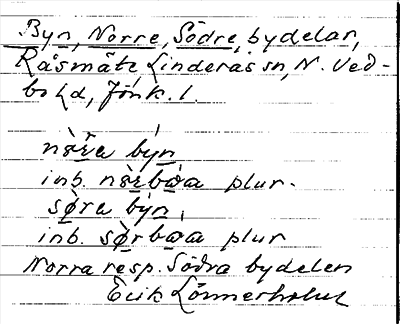 Byn, Norre, Södre, bydelar,
Råsmåte Linderås sn, N. Ved-
bo hd, Jönk. l.
nör̀a býn
inb. nörboa plur.
søra býn
inb. sørboa plur
Norra resp. Södra bydelen
Erik Lönnerholm